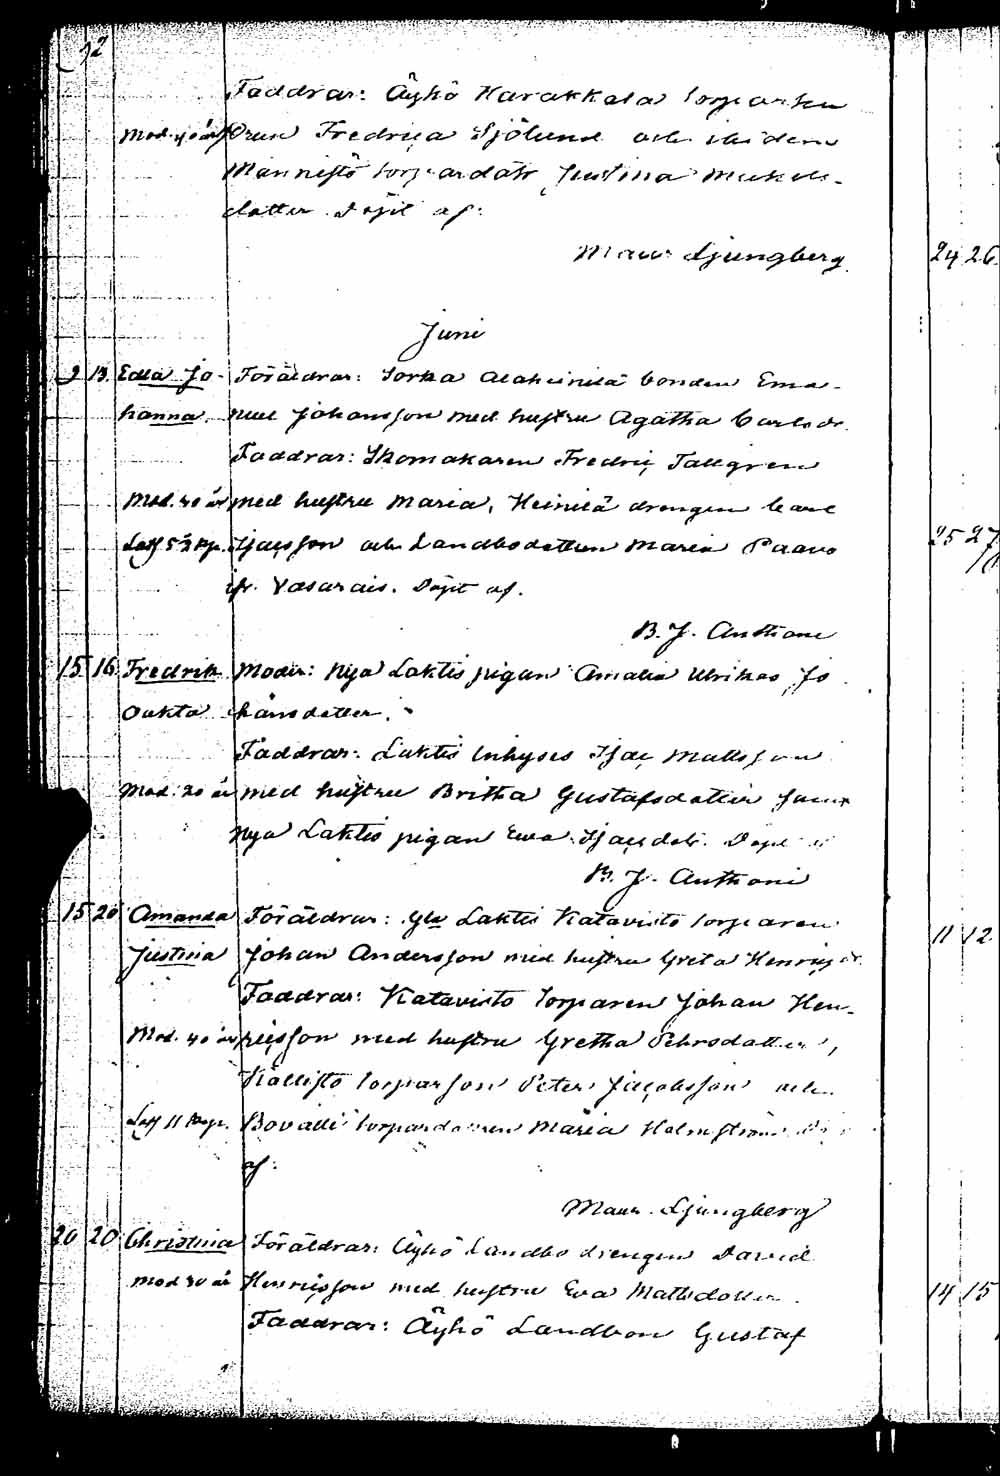 92
Faddrar: Äyhö Harakkala torparhu
Mod. 40 år strun Fredrica Sjölund och ibidem
Männistö torpardotr Justina Michels-
dotter. Döpt af:
Maur. Ljungberg
24 26
Juni
9 13 Edla Jo- Föräldrar: Sorka Alaheinilä bonden Ema-
hanna nuel Johansson med hustru Agatha Carlsdr.
Faddrar: Skomakaren Fredric Tallgren
Mod. 40 år med hustru Maria, Heinilä drengen Carl
Isacsson och Landbodottren Maria Paavo
25 27
ifr. Vasarais. Döpt af.
B. J. Anthoni
15 16 Fredrik Moder: Nya Laktis pigan Amalia Ulrika Jo
hansdotter.
Faddrar: Laktis Inhyses Isac Mattsson
Mod. 20 år med hustru Britha Gustafsdotter samt
Nya Laktis pigan Ewa Isacsdotr. Döpt
B. J. Anthoni
15 20 Amanda Föräldrar: Gla Laktis Katavisto torparen
11 12
Justina Johan Andersson med hustru Greta Henricsdr.
Faddrar: Katavisto torparen Johan Hen-
Mod. 40 år ricsson med hustru Gretha Pehrsdotter,
Kallisto torparson Peter Jacobsson och
Maria Holmström
af:
Maur. Ljungberg
20 20 Christina Föräldrar: Äyhö Landbo drengen David
Mod 30 år Henricsson med hustru Eva Mattsdotter.
14 15
Faddrar: Äyhö Landbon Gustaf